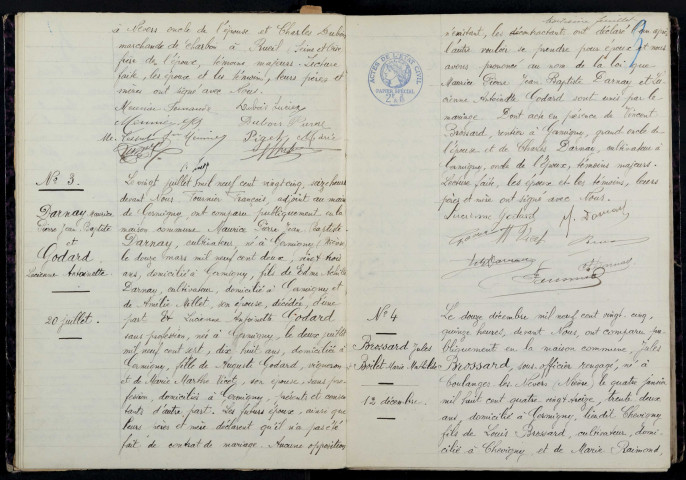 à Nevers oncle de l'épouse et Charles Dubois
marchand de charbon à Rueil Seine et Oise
père de l'époux, témoins majeurs. Lecture
faite, les époux et les témoins, leurs pères et
mères ont signé avec Nous.
N° 3.
Darnay Maurice
Pierre Jean Baptiste
et
Godard
Lucienne Antoinette
20 juillet.
Le vingt juillet mil neuf cent vingt cinq, seize heures
devant Nous Fournier François, adjoint au maire
de Germigny, ont comparu publiquement en la
maison commune Maurice Pierre Jean Baptiste
Darnay, cultivateur, né à Germigny (Nièvre)
le douze mars mil neuf cent deux, vingt trois
ans, domicilié à Germigny, fils de Edme Achille
Darnay, cultivateur, domicilié à Germigny et
de Amélie Millot, son épouse, décédés, d'une
part & Lucienne Antoinette Godard
sans profession, née à Germigny, le deux juillet
mil neuf cent sept, dix huit ans, domiciliée à
Germigny, fille de Auguste Godard, vigneron
et de Marie Marthe Picot, son épouse, sans pro-
fession, domiciliés à Germigny, présents et consen-
tants d'autre part. Les futurs époux, ainsi que
leurs pères et mère déclarent qu'il n'a pas été
fait de contrat de mariage. Aucune opposition
ACTES DE L'ETAT CIVIL
PAPIER SPECIAL
feuillet
n'existant, les contractants ont déclaré l'un après
l'autre vouloir se prendre pour époux et nous
avons prononcé au nom de la loi que
Maurice Pierre Jean Baptiste Darnay et Lu-
cienne Antoinette Godard sont unis par le
mariage. Dont acte en présence de Vincent
Brossard, rentier à Germigny, grand oncle de
l'épouse et de Charles Darnay, cultivateur à
Germigny, oncle de l'époux, témoins majeurs.
Lecture faite, les époux et les témoins, leurs
père et mère ont signé avec Nous.
Lucienne Godard
N° 4
Brossard Jules
Boilet Marie Mathilde
12 décembre.
Le douze décembre mil neuf cent vingt cinq,
quinze heures, devant Nous, ont comparu pu-
bliquement en la maison commune, Jules
Brossard, sous officier rengagé, né à
Coulanges les Nevers (Nièvre), le quatre janvier
mil huit cent quatre vingt treize, trente deux
ans, domicilié à Germigny, lieudit Chevigny
fils de Louis Brossard, cultivateur, domi-
cilié à Chevigny, et de Marie Raimond,